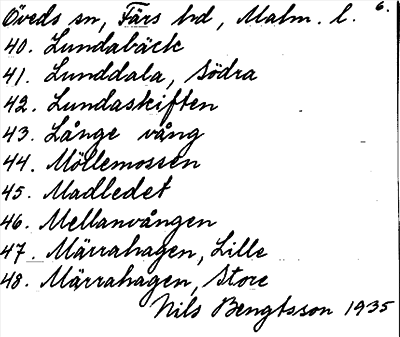 Öveds sn, Färs hd, Malm. l. 6.
40. Lundabäck
41. Lunddala, Södra
42. Lundaskiften
43. Långe vång
44. Möllemossen
45. Madledet
46. Mellanvången
47. Märrahagen, Lille
48. Märrahagen, Store
Nils Bengtsson 1935